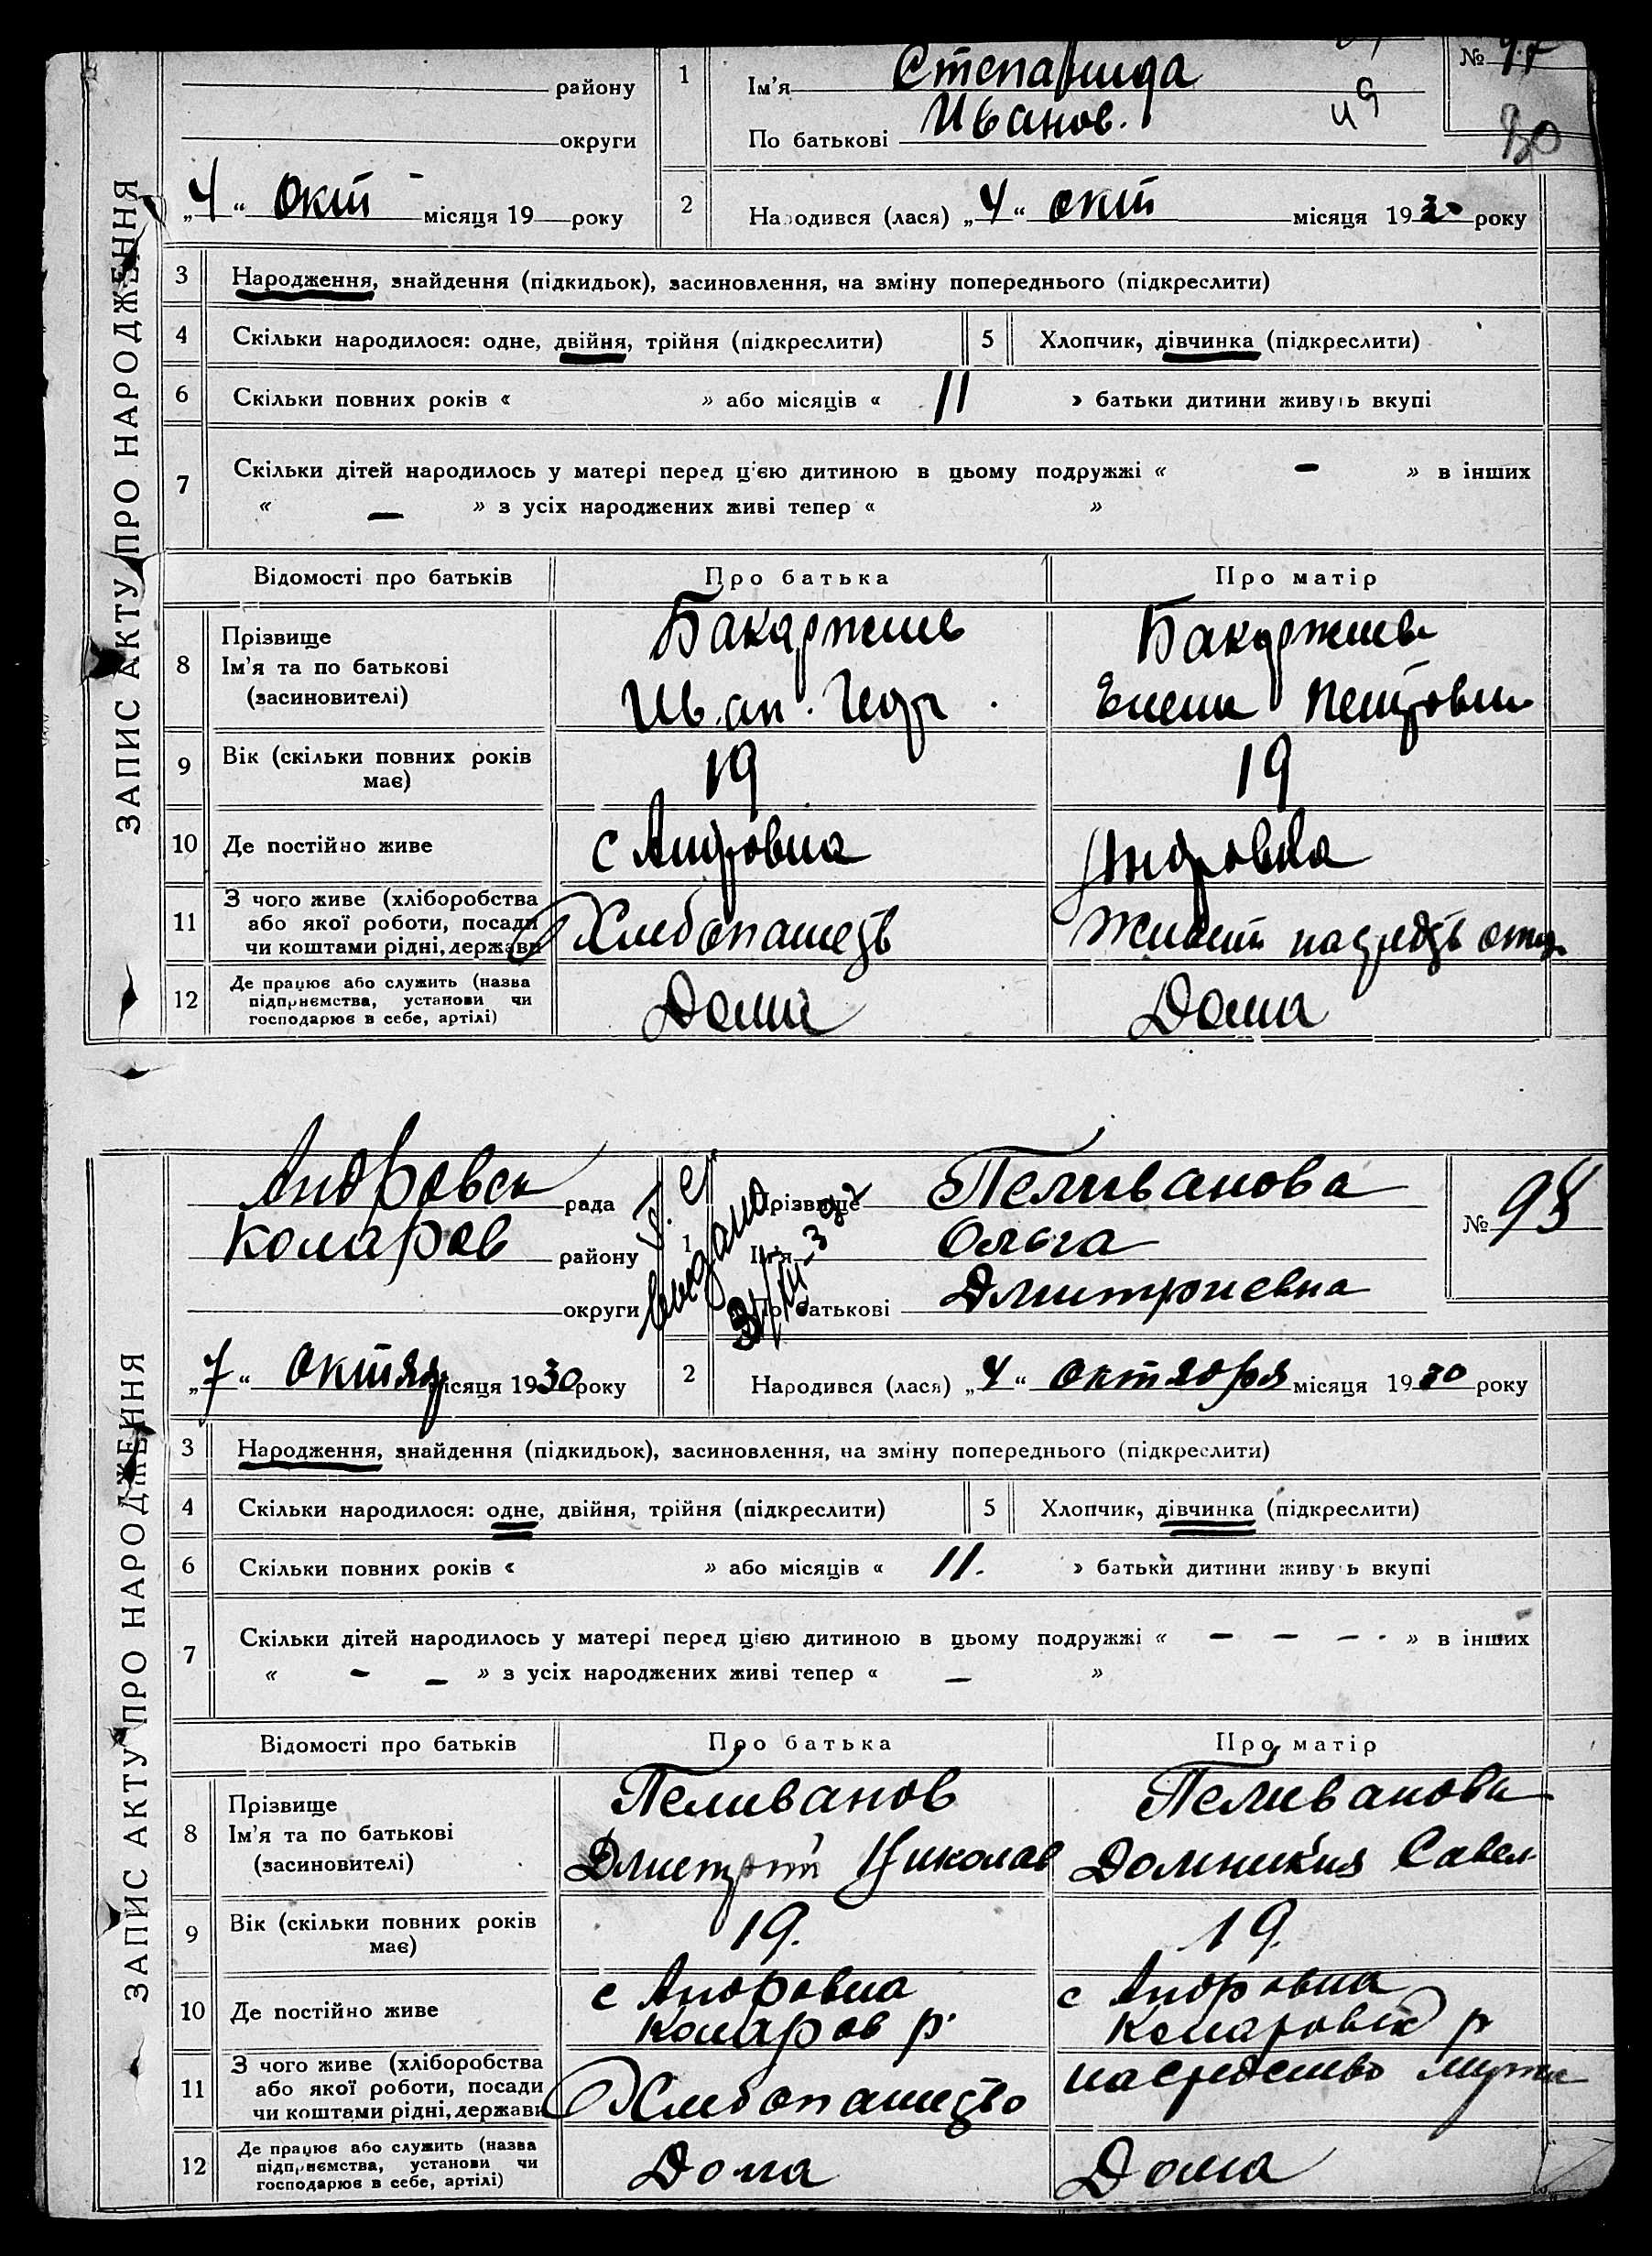 ЗАПИС АКТУ ПРО НАРОДЖЕННЯ
району
округи
„4“ окт місяця 19 року
1 Ім'я Степанида
По батькові Иванов.
№ 97
30
2 Народився (лася) „4“ окт місяця 1930 року
3 Народження, знайдення (підкидьок), засиновлення, на зміну попереднього (підкреслити)
4 Скільки народилося: одне, двійня, трійня (підкреслити)
5 Хлопчик, дівчинка (підкреслити)
6 Скільки повних років « » або місяців « 11 » батьки дитини живуть вкупі
7 Скільки дітей народилось у матері перед цією дитиною в цьому подружжі « – » в інших
« — » з усіх народжених живі тепер « »
Відомості про батьків Про батька Про матір
8 Прізвище
Ім'я та по батькові
(засиновителі)
Бакаржиев
Иван
Бакаржиев
Елена Петровн
9 Вік (скільки повних років
має)
19 19
10 Де постійно живе
с Андровка
Андровка
11 З чого живе (хліборобства
або якої роботи, посади
чи коштами рідні, держави
Хлебопашеств
Живет на средств
12 Де працює або служить (назва
підприємства, установи чи
господарює в себе, артілі)
Дома Дома
ЗАПИС АКТУ ПРО НАРОДЖЕННЯ
Андровск рада
Коларов району
округи
выдано
„7“ октяр місяця 1930 року
1 Прізвище Пеливанова
Ім'я Ольга
По батькові Дмитриевна
№ 98
2 Народився (лася) „4“ октября місяця 1930 року
3 Народження, знайдення (підкидьок), засиновлення, на зміну попереднього (підкреслити)
4 Скільки народилося: одне, двійня, трійня (підкреслити)
5 Хлопчик, дівчинка (підкреслити)
6 Скільки повних років « » або місяців « 11. » батьки дитини живуть вкупі
7 Скільки дітей народилось у матері перед цією дитиною в цьому подружжі « – – – » в інших
« – – » з усіх народжених живі тепер « – »
Відомості про батьків Про батька Про матір
8 Прізвище
Ім'я та по батькові
(засиновителі)
Пеливанов
Дмитрий Николав
Пеливанова
Домникия Савел
9 Вік (скільки повних років
має)
19. 19.
10 Де постійно живе
с Андровка
Коларов р.
с Андровка
Коларовск р
11 З чого живе (хліборобства
або якої роботи, посади
чи коштами рідні, держави
Хлебопашество
на средство мужа
12 Де працює або служить (назва
підприємства, установи чи
господарює в себе, артілі)
Дома Дома